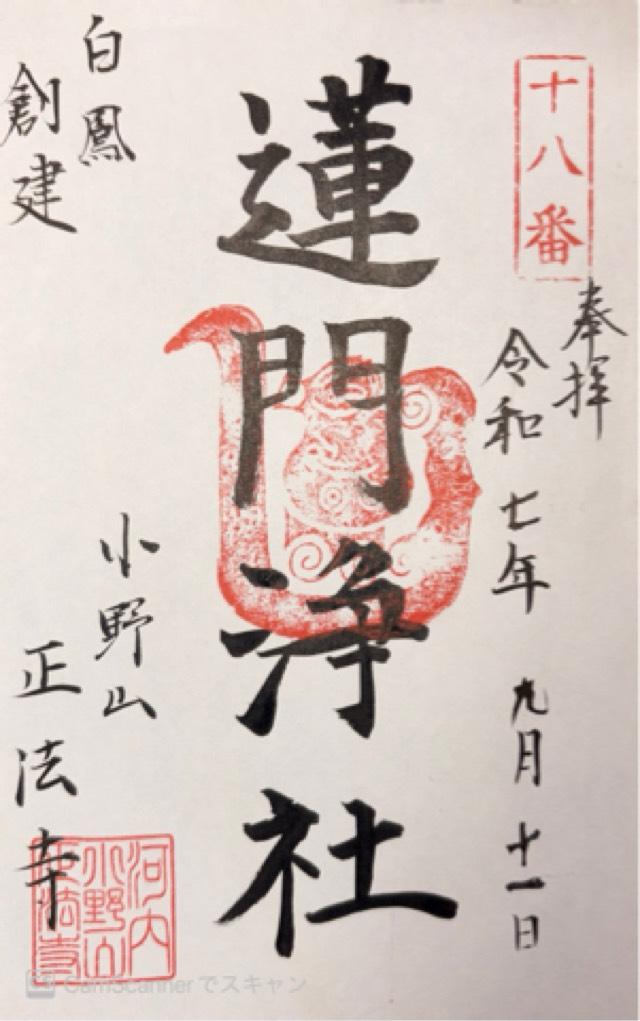 十八番
奉拝
令和七年 九月 十一日
蓮門浄社
白鳳
創建
小野山
正法寺
河内
小野山
正法寺
CamScannerでスキャン